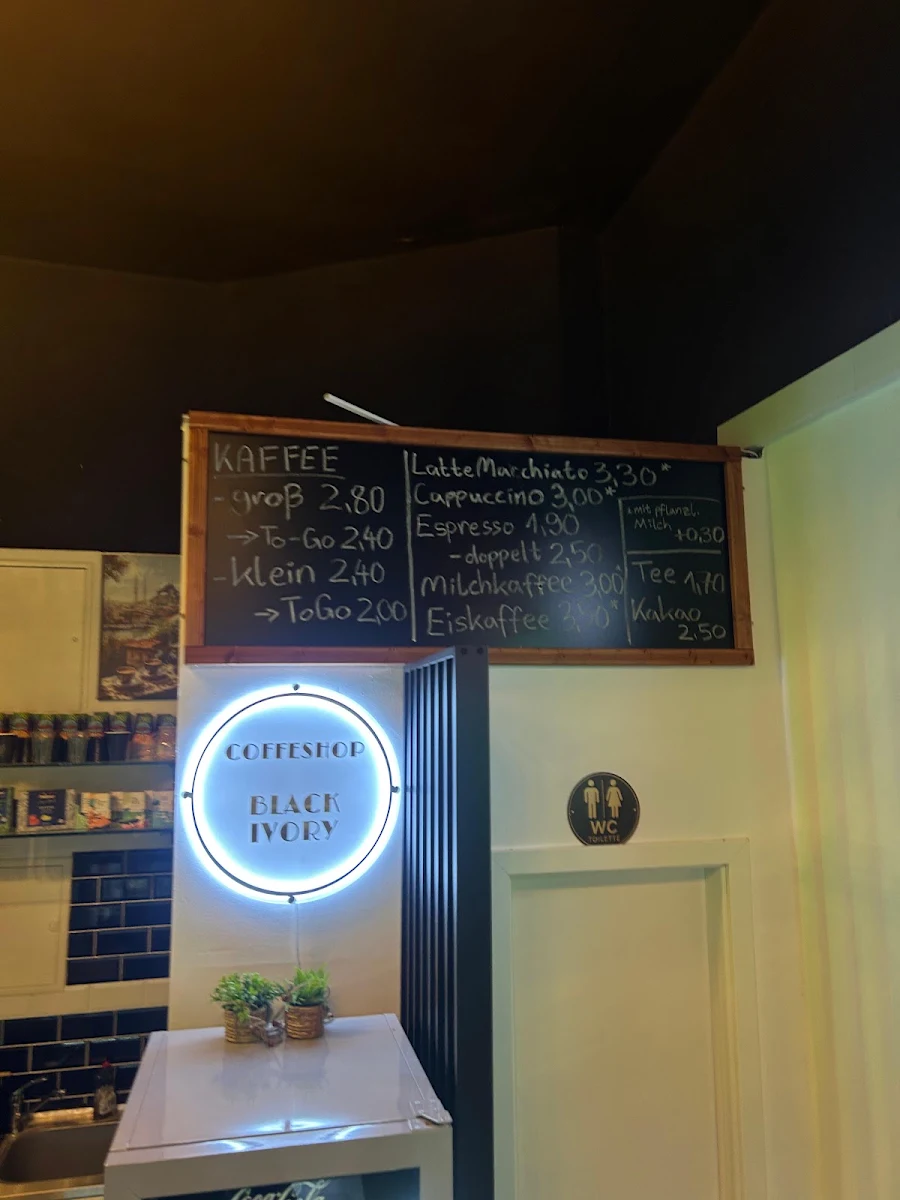 KAFFEE
- groß 2,80
→ To-Go 2,40
- klein 2,40
→ ToGo 2,00
Latte Macchiato 3,30*
Cappuccino 3,00*
Espresso 1,90
- doppelt 2,50
Milchkaffee 3,00*
Eiskaffee
* mit pflanzl.
Milch
+0,30
Tee 1,70
Kakao
2.50
COFFESHOP
BLACK
IVORY
WC
TOILETTE
Coca-Cola